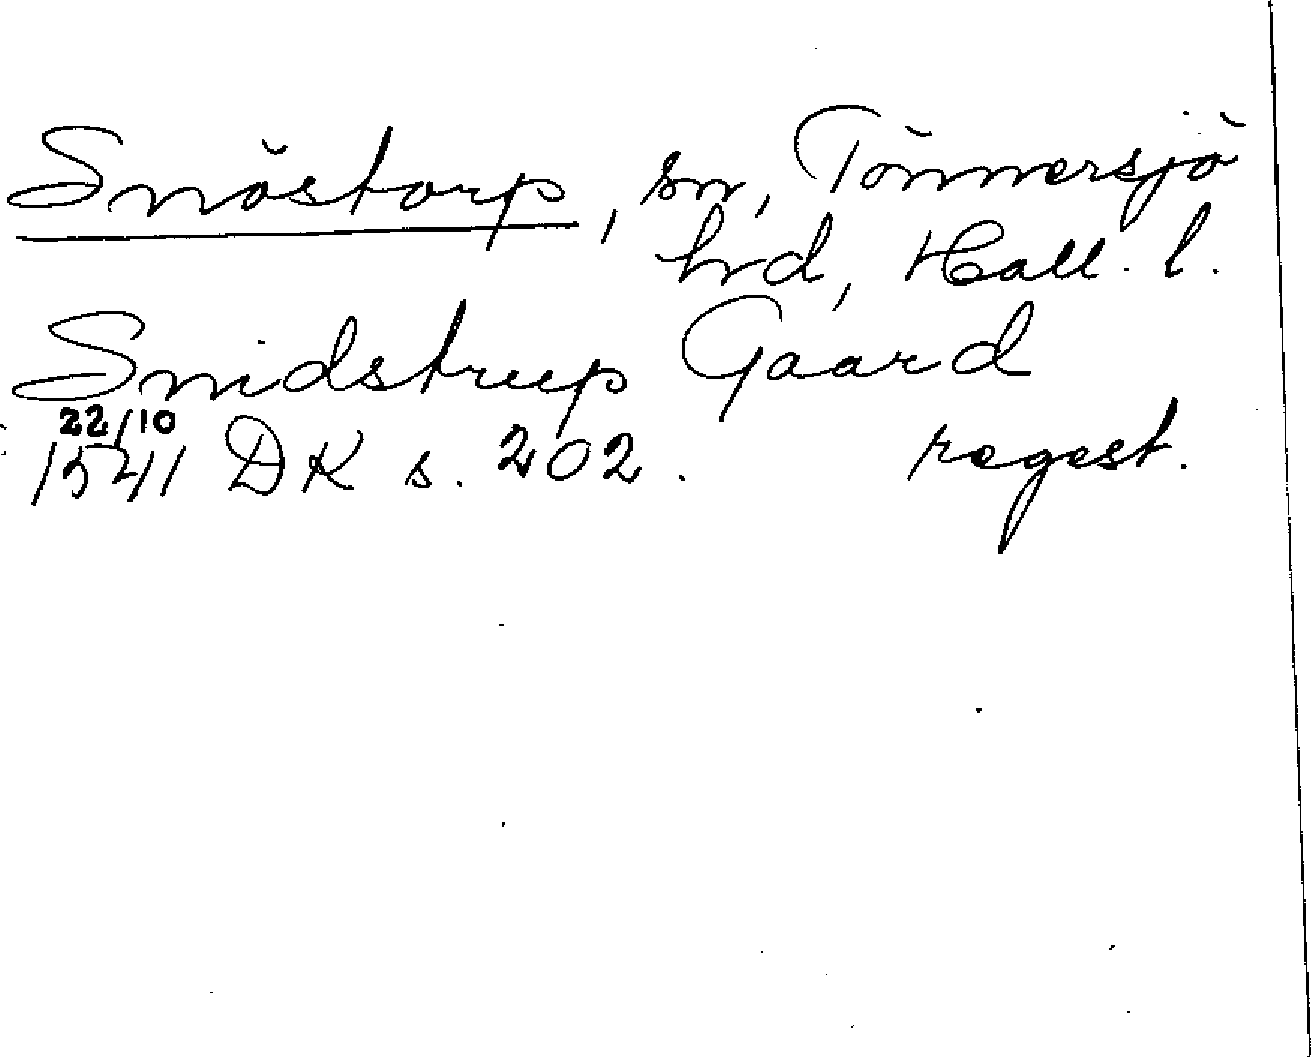 Snöstorp, sn, Tönnersjö
hrd, Hall. l.
Snidstrup Gaard
22/10
1541 DK s. 202. regest.